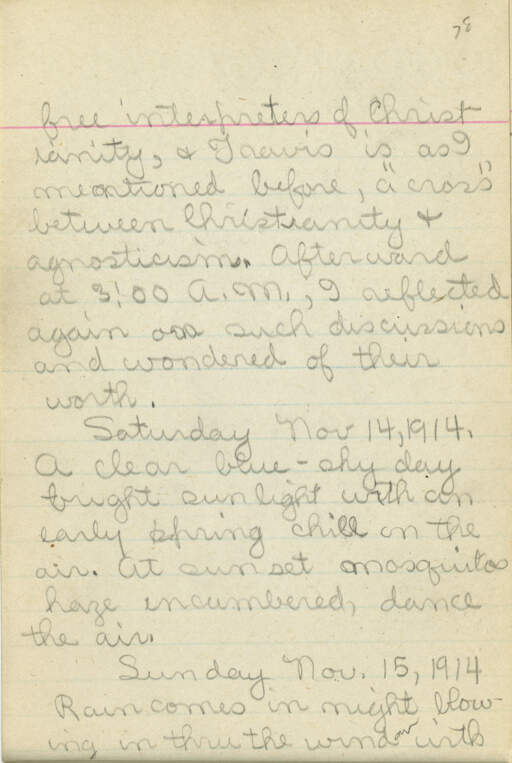 78
free interpreters of Christ-
ianity, & Travis is as I
mentioned before, "a cross"
between Christianity &
agnosticism. Afterward
at 3:00 A.M., I reflected
again on such discussions
and wondered of their
worth.
Saturday Nov 14, 1914.
A clear blue-sky day
bright sunlight with an
early spring chill in the
air. At sunset mosquitos
haze encumbered, dance
the air.
Sunday Nov. 15, 1914
Rain comes in night blow-
ing in thru the window with